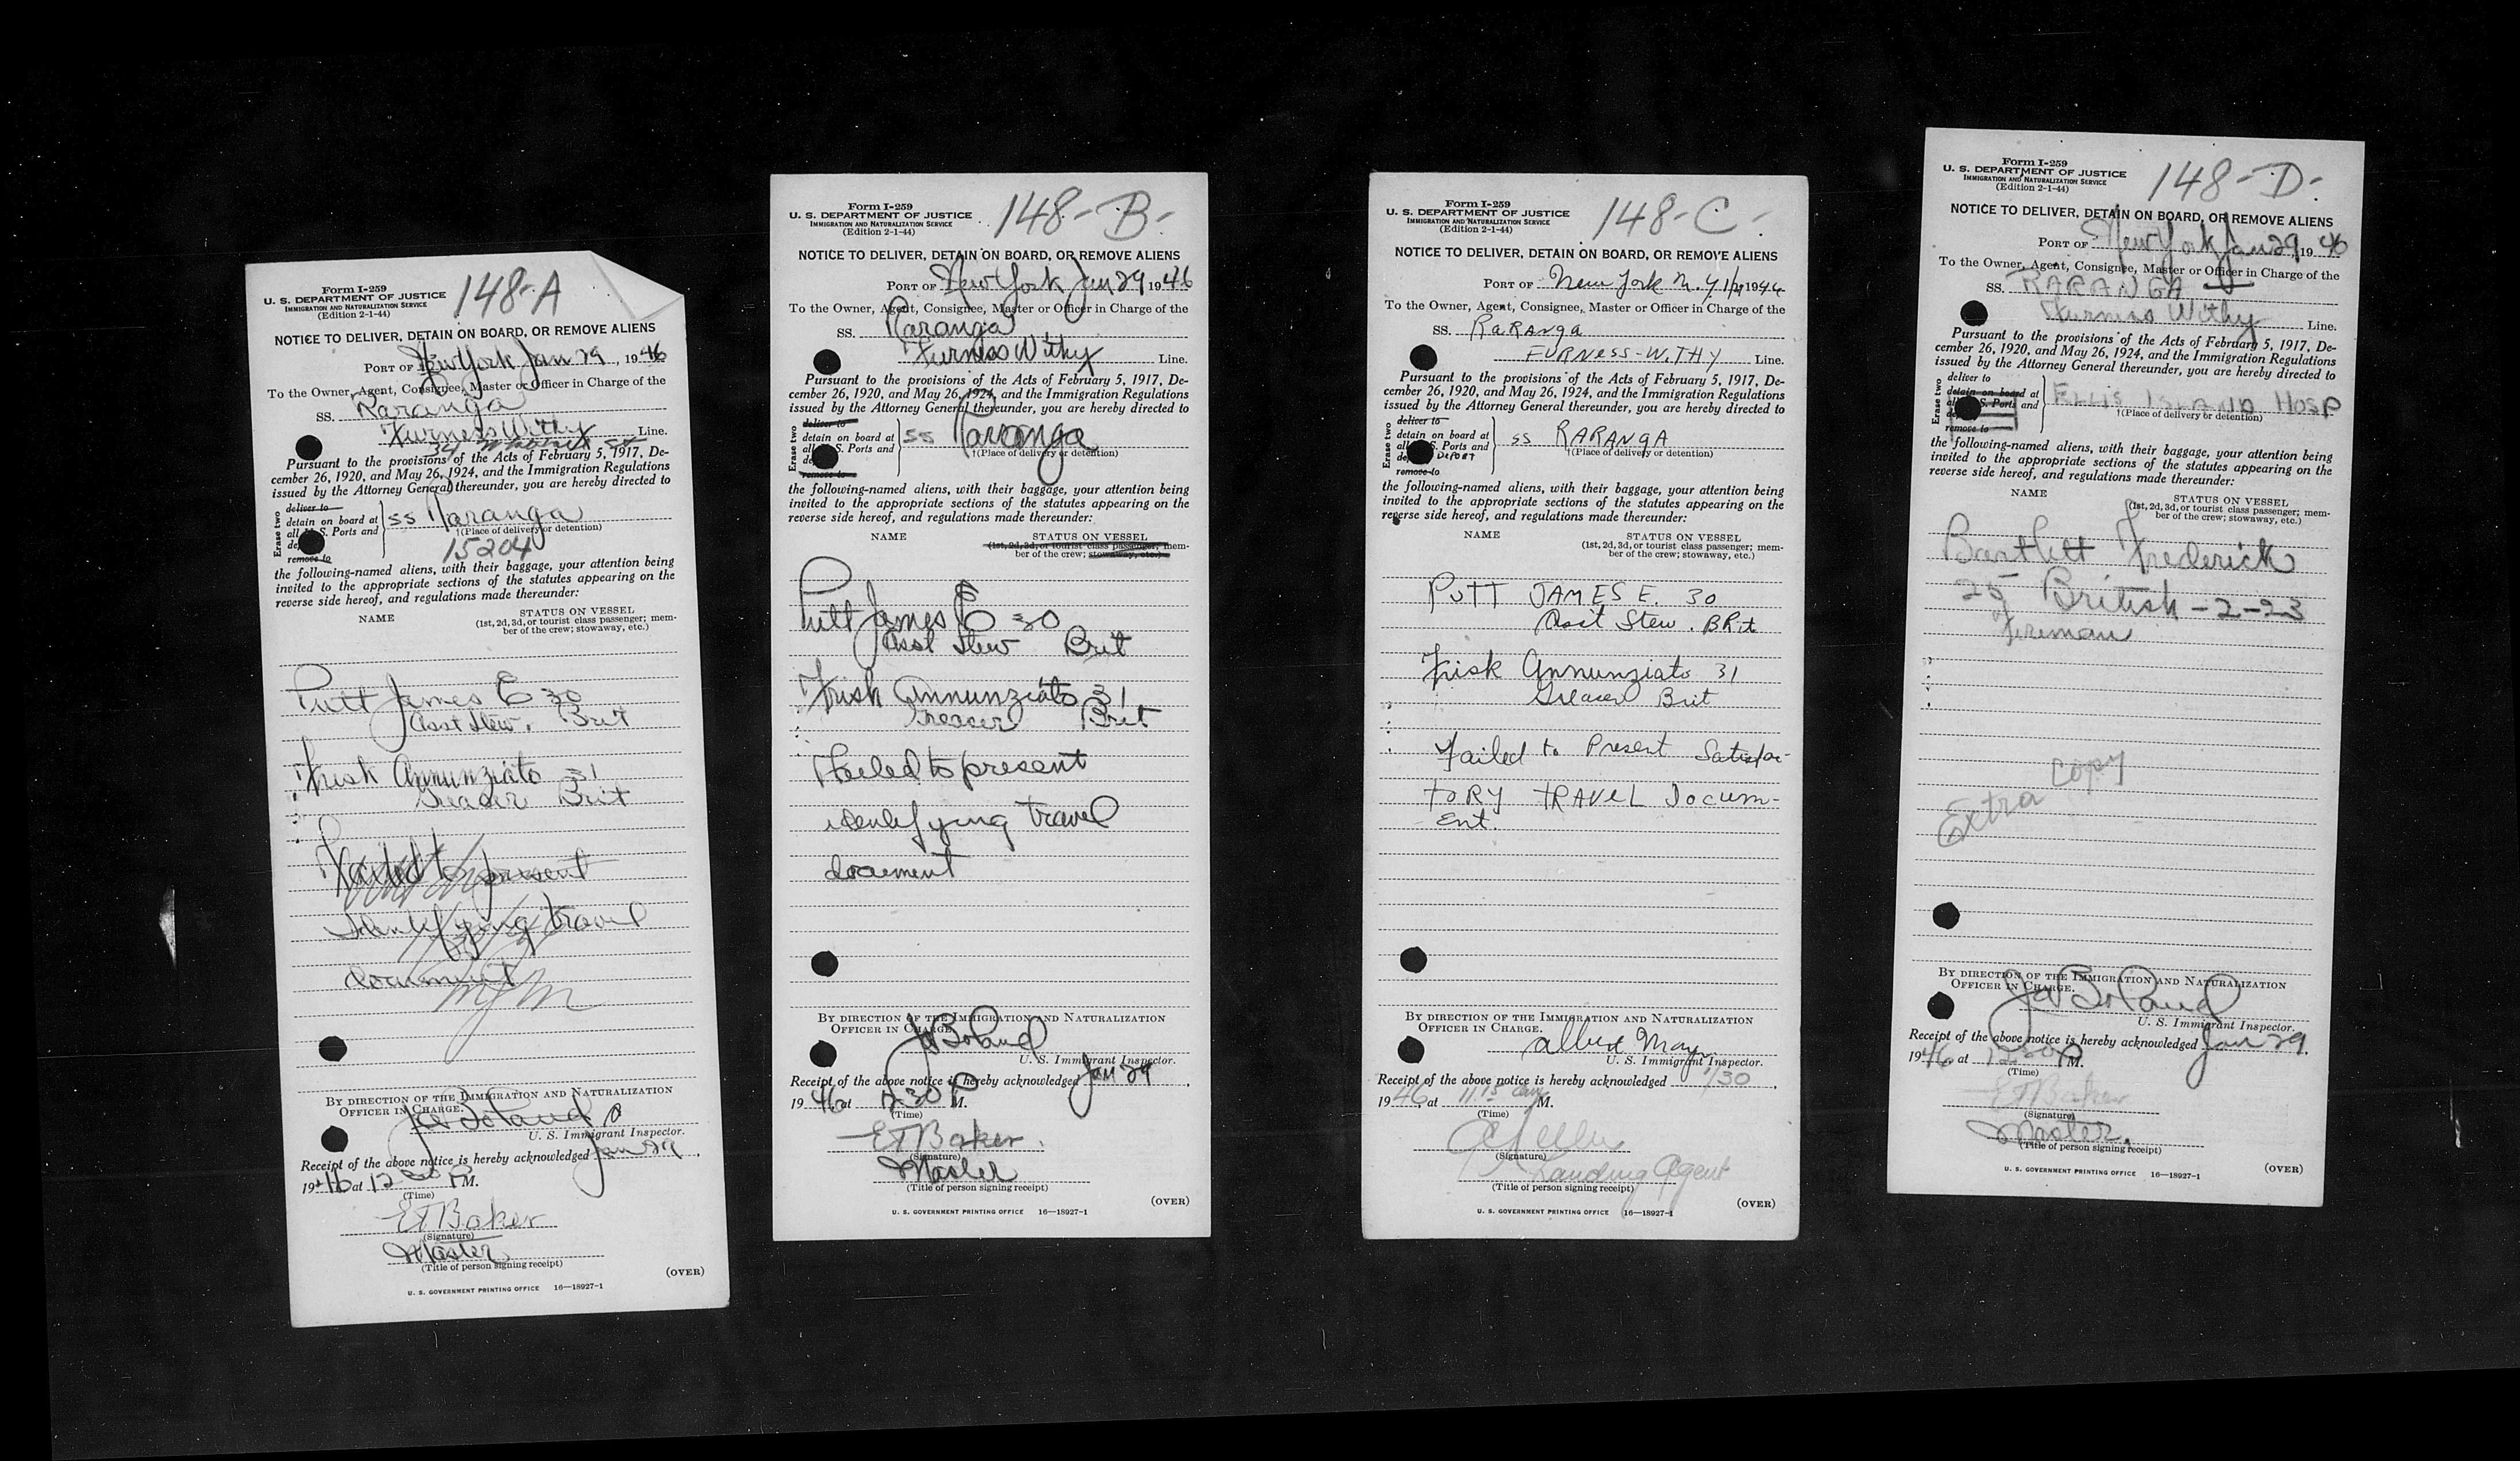 148-A
Form I-259
U. S. DEPARTMENT OF JUSTICE
IMMIGRATION AND NATURALIZATION SERVICE
(Edition 2-1-44)
NOTICE TO DELIVER, DETAIN ON BOARD, OR REMOVE ALIENS
PORT OF New York Jan 29, 1946
To the Owner, Agent, Consignee, Master or Officer in Charge of the
SS. Raranga
Furness Withy Line.
34
Pursuant to the provisions of the Acts of February 5, 1917, De-
cember 26, 1920, and May 26, 1924, and the Immigration Regulations
issued by the Attorney General thereunder, you are hereby directed to
Erase two
deliver to
detain on board at
all U. S. Ports and
remove to
SS Raranga
†(Place of delivery or detention)
15204
the following-named aliens, with their baggage, your attention being
invited to the appropriate sections of the statutes appearing on the
reverse side hereof, and regulations made thereunder:
NAME
STATUS ON VESSEL
(1st, 2d, 3d, or tourist class passenger; mem-
ber of the crew; stowaway, etc.)
Putt James E 30
Asst Stew. Brit
Frisk Annunziato 31
Greaser Brit
Failed to present
identifying travel
document
BY DIRECTION OF THE IMMIGRATION AND NATURALIZATION
OFFICER IN CHARGE.
J W Boland
U. S. Immigrant Inspector.
Receipt of the above notice is hereby acknowledged Jan 29,
1946 at 12 30 P M.
(Time)
E T Baker
(Signature)
Master
(Title of person signing receipt)
(OVER)
U. S. GOVERNMENT PRINTING OFFICE 16—18927-1
148-B-
Form I-259
U. S. DEPARTMENT OF JUSTICE
IMMIGRATION AND NATURALIZATION SERVICE
(Edition 2-1-44)
NOTICE TO DELIVER, DETAIN ON BOARD, OR REMOVE ALIENS
PORT OF New York Jan 29 1946
To the Owner, Agent, Consignee, Master or Officer in Charge of the
SS. Raranga
Furness Withy Line.
Pursuant to the provisions of the Acts of February 5, 1917, De-
cember 26, 1920, and May 26, 1924, and the Immigration Regulations
issued by the Attorney General thereunder, you are hereby directed to
Erase two
deliver to
detain on board at
all U. S. Ports and
remove to
SS Raranga
†(Place of delivery or detention)
the following-named aliens, with their baggage, your attention being
invited to the appropriate sections of the statutes appearing on the
reverse side hereof, and regulations made thereunder:
NAME
STATUS ON VESSEL
(1st, 2d, 3d, or tourist class passenger; mem-
ber of the crew; stowaway, etc.)
Putt James E 30
Asst Stew Brit
Frisk Annunziato 31
Greaser Brit
Failed to present
identifying travel
document
BY DIRECTION OF THE IMMIGRATION AND NATURALIZATION
OFFICER IN CHARGE.
J W Boland
U. S. Immigrant Inspector.
Receipt of the above notice is hereby acknowledged Jan 29,
1946 at 12 30 P M.
(Time)
E T Baker.
(Signature)
Master
(Title of person signing receipt)
(OVER)
U. S. GOVERNMENT PRINTING OFFICE 16—18927-1
148-C-
Form I-259
U. S. DEPARTMENT OF JUSTICE
IMMIGRATION AND NATURALIZATION SERVICE
(Edition 2-1-44)
NOTICE TO DELIVER, DETAIN ON BOARD, OR REMOVE ALIENS
PORT OF New York N.Y. 1946
To the Owner, Agent, Consignee, Master or Officer in Charge of the
SS. RARANGA
FURNESS-WITHY Line.
Pursuant to the provisions of the Acts of February 5, 1917, De-
cember 26, 1920, and May 26, 1924, and the Immigration Regulations
issued by the Attorney General thereunder, you are hereby directed to
Erase two
deliver to
detain on board at
all U. S. Ports and
DEPORT
remove to
SS RARANGA
†(Place of delivery or detention)
the following-named aliens, with their baggage, your attention being
invited to the appropriate sections of the statutes appearing on the
reverse side hereof, and regulations made thereunder:
NAME
STATUS ON VESSEL
(1st, 2d, 3d, or tourist class passenger; mem-
ber of the crew; stowaway, etc.)
PUTT JAMES E. 30
Asst Stew. BRit
Frisk Annunziato 31
Greaser Brit
Failed to Present Satisfac-
TORY TRAVEL Docum-
Ent.
BY DIRECTION OF THE IMMIGRATION AND NATURALIZATION
OFFICER IN CHARGE.
Albert May
U. S. Immigrant Inspector.
Receipt of the above notice is hereby acknowledged 1/30,
1946, at 11 15 am M.
(Time)
(Signature)
Landing Agent
(Title of person signing receipt)
(OVER)
U. S. GOVERNMENT PRINTING OFFICE 16—18927-1
148-D-
Form I-259
U. S. DEPARTMENT OF JUSTICE
IMMIGRATION AND NATURALIZATION SERVICE
(Edition 2-1-44)
NOTICE TO DELIVER, DETAIN ON BOARD, OR REMOVE ALIENS
PORT OF New York Jan 29 1946
To the Owner, Agent, Consignee, Master or Officer in Charge of the
SS. RARANGA
Furness Withy Line.
Pursuant to the provisions of the Acts of February 5, 1917, De-
cember 26, 1920, and May 26, 1924, and the Immigration Regulations
issued by the Attorney General thereunder, you are hereby directed to
Erase two
deliver to
detain on board at
all U. S. Ports and
remove to
ELLIS ISLAND HOSP
†(Place of delivery or detention)
the following-named aliens, with their baggage, your attention being
invited to the appropriate sections of the statutes appearing on the
reverse side hereof, and regulations made thereunder:
NAME
STATUS ON VESSEL
(1st, 2d, 3d, or tourist class passenger; mem-
ber of the crew; stowaway, etc.)
Bartlett Frederick
25 British - 2-23
Fireman
Extra Copy
BY DIRECTION OF THE IMMIGRATION AND NATURALIZATION
OFFICER IN CHARGE.
J W Boland
U. S. Immigrant Inspector.
Receipt of the above notice is hereby acknowledged Jan 29,
1946 at 12 30 P M.
(Time)
E T Baker
(Signature)
Master.
(Title of person signing receipt)
(OVER)
U. S. GOVERNMENT PRINTING OFFICE 16—18927-1